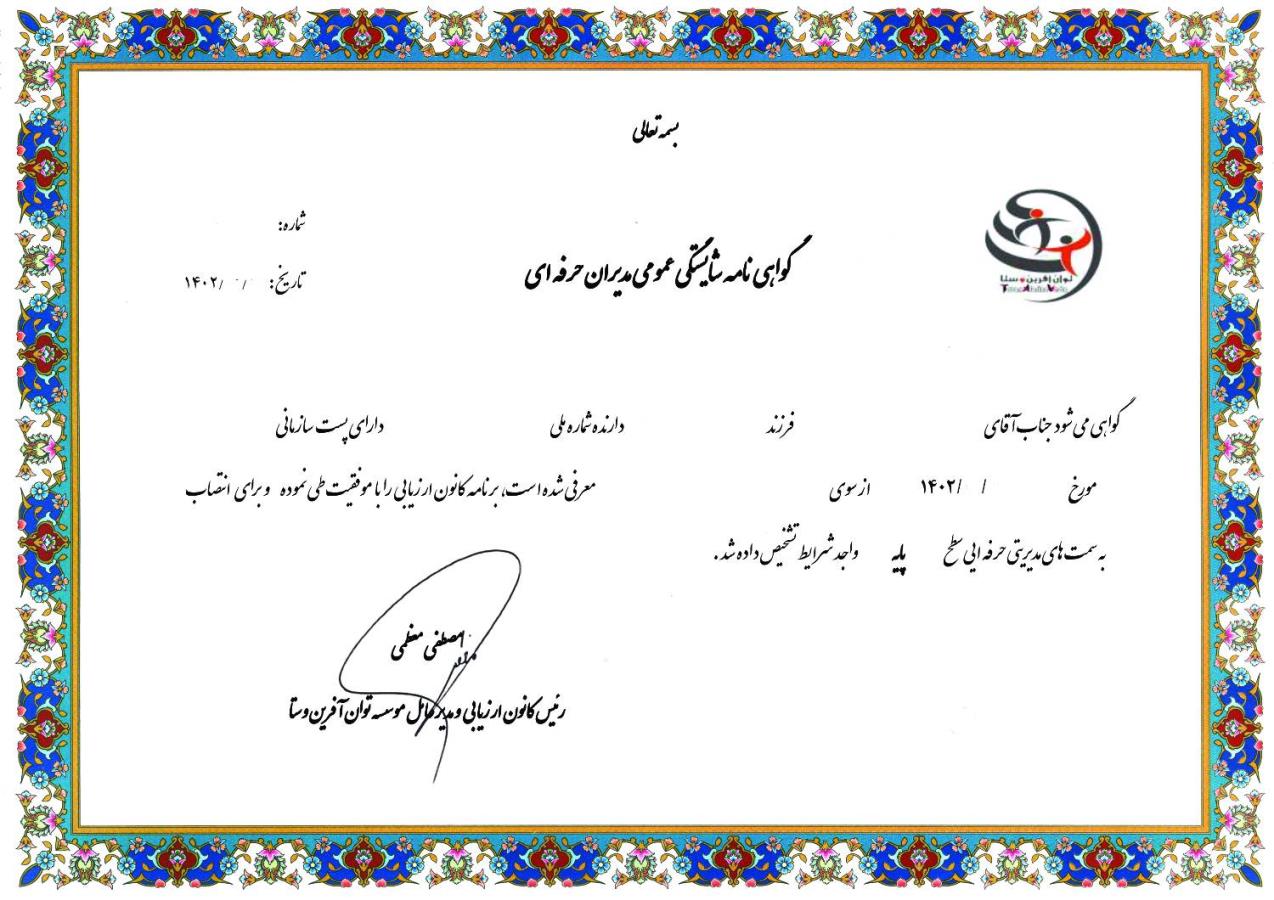 بسمه تعالی
شماره:
تاریخ: / /۱۴۰۲
گواهی نامه شایستگی عمومی مدیران حرفه ای
توان آفرین وستا
گواهی می شود جناب آقای فرزند دارنده شماره ملی دارای پست سازمانی
مورخ / /۱۴۰۲ از سوی معرفی شده است، برنامه کانون ارزیابی را با موفقیت طی نموده و برای انتصاب
به سمت های مدیریتی حرفه ایی سطح پایه واجد شرایط تشخیص داده شد.
مصطفی معظمی
رئیس کانون ارزیابی و مدیر عامل موسسه توان آفرین وستا